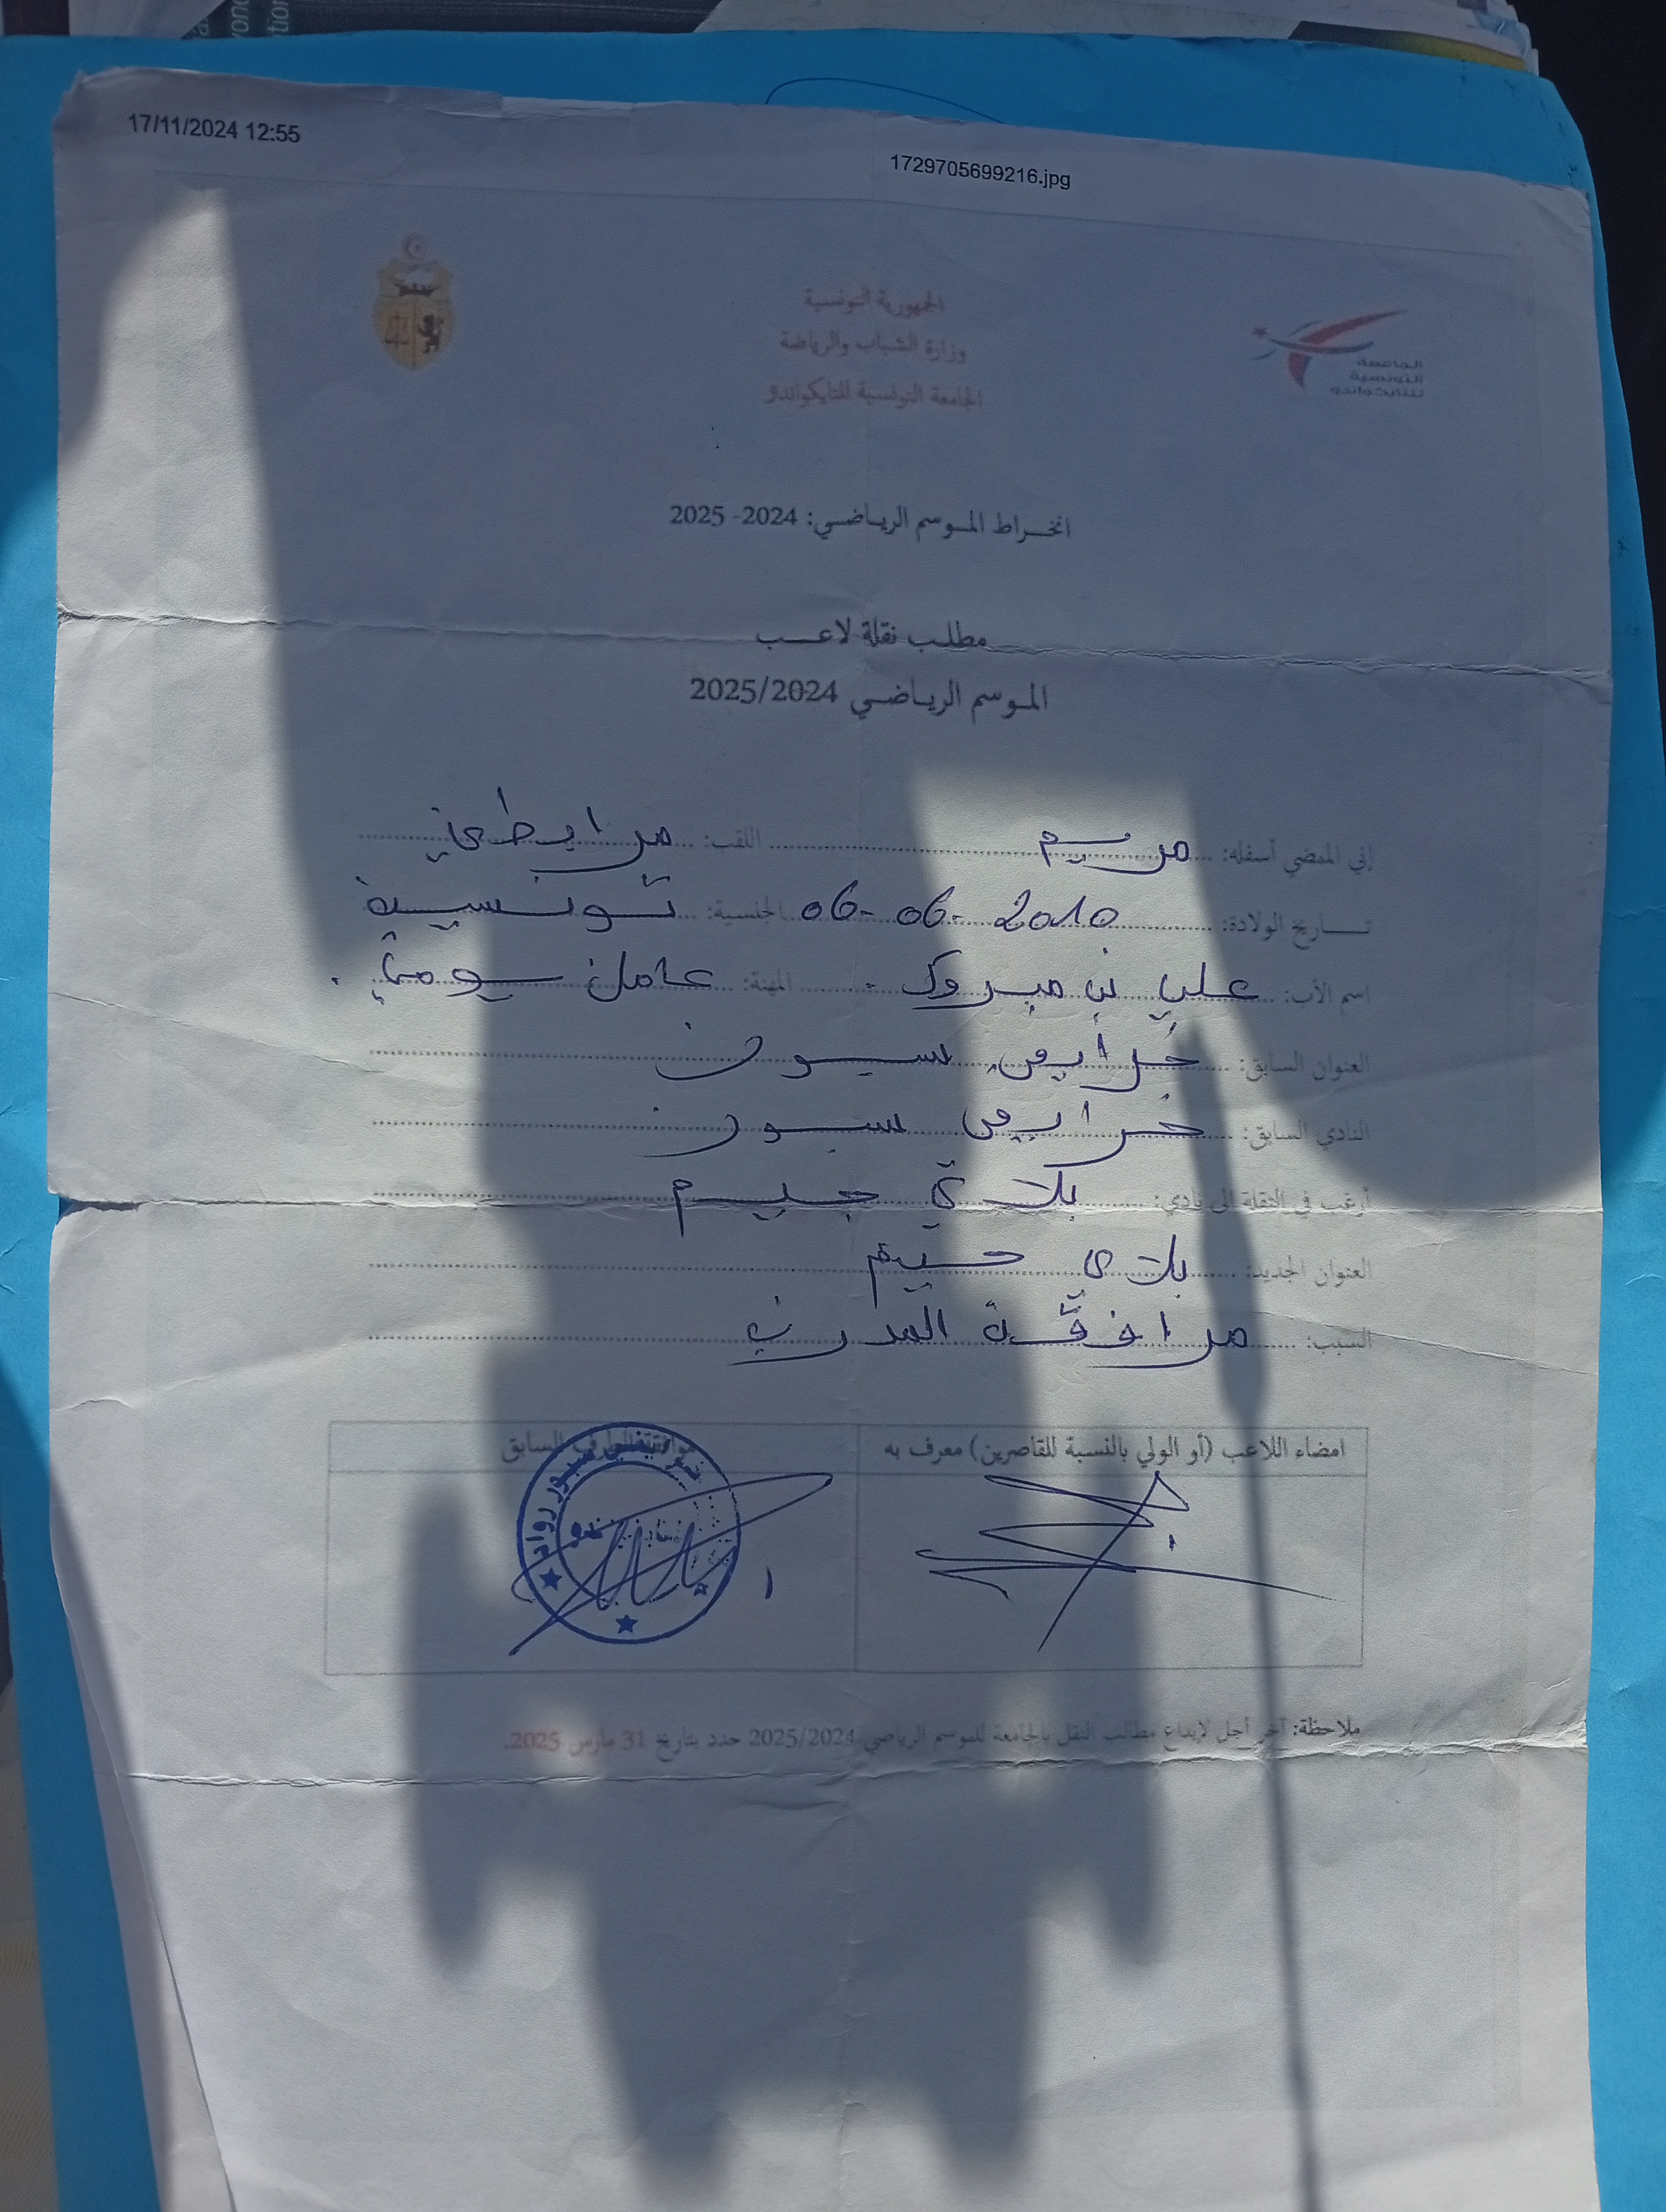 17/11/2024 12:55
1729705699216.jpg
الجمهورية التونسية
وزارة الشباب والرياضة
الجامعة التونسية للتايكواندو
الجامعة
التونسية
للتايكواندو
انخراط الموسم الرياضي: 2024- 2025
مطلب نقلة لاعب
الموسم الرياضي 2025/2024
إني الممضي أسفله: مريم اللقب: مرابطي
تاريخ الولادة: 06-06-2010 الجنسية: تونسية
اسم الأب: علي بن مبروك المهنة: عامل يومي
العنوان السابق:
النادي السابق: سبور
أرغب في النقلة الى نادي: جيم
العنوان الجديد: جيم
السبب: مرافقة المدرب
امضاء اللاعب (أو الولي بالنسبة للقاصرين) معرف به
السابق
سبور رواد
ملاحظة: آخر أجل لإيداع مطالب النقل بالجامعة للموسم الرياضي 2025/2024 حدد بتاريخ 31 مارس 2025.